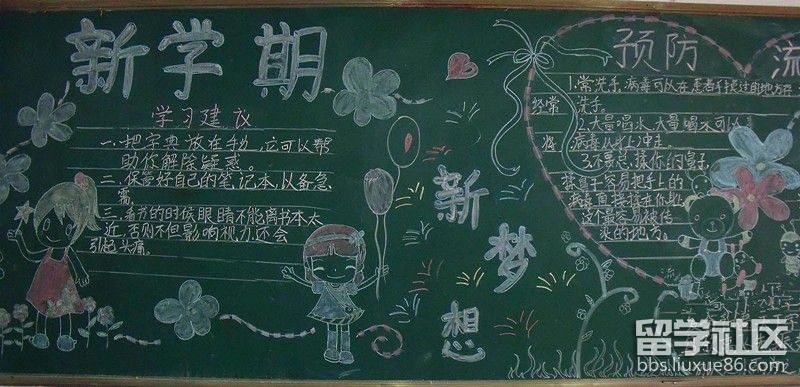 新学期
学习建议
一.把字典放在手边,它可以帮
助你解除疑惑。
二.保管好自己的笔记本,以备急
需。
三.看书的时候眼睛不能离书本太
近,否则不但影响视力,还会
引起头痛。
新梦想
预防流
1.常洗手,病毒可以在患者手摸过的地方在
经常洗手。
2.大量喝水,大量喝水可以
将病毒从
3.不要总揉你的鼻子,
揉鼻子容易把手上的
病毒直接揉在你
这个最容易被传
染的地方。
留学社区
bbs.liuxue86.com